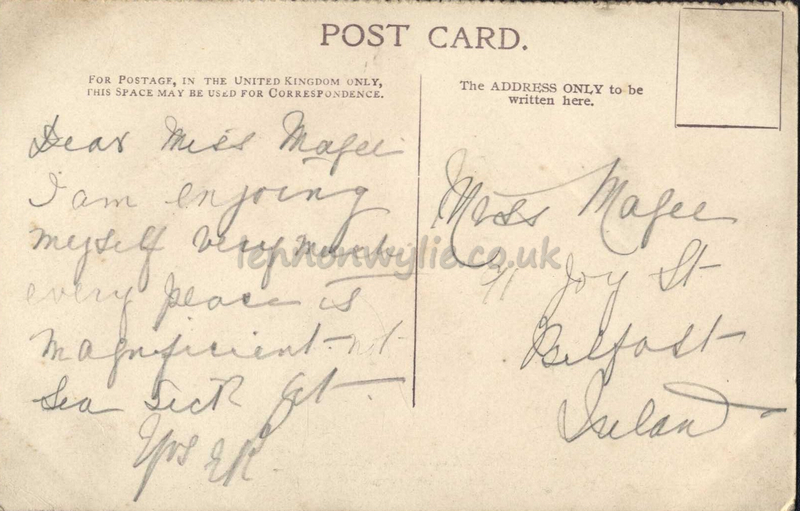 POST CARD.
FOR POSTAGE, IN THE UNITED KINGDOM ONLY,
THIS SPACE MAY BE USED FOR CORRESPONDENCE.
The ADDRESS ONLY to be
written here.
Dear Miss Magee
I am enjoing
myself very much
every peace is
magnificient not
Sea Sick yet
Yrs
Miss Magee
Joy St
Belfast
Ireland
lennonwylie.co.uk